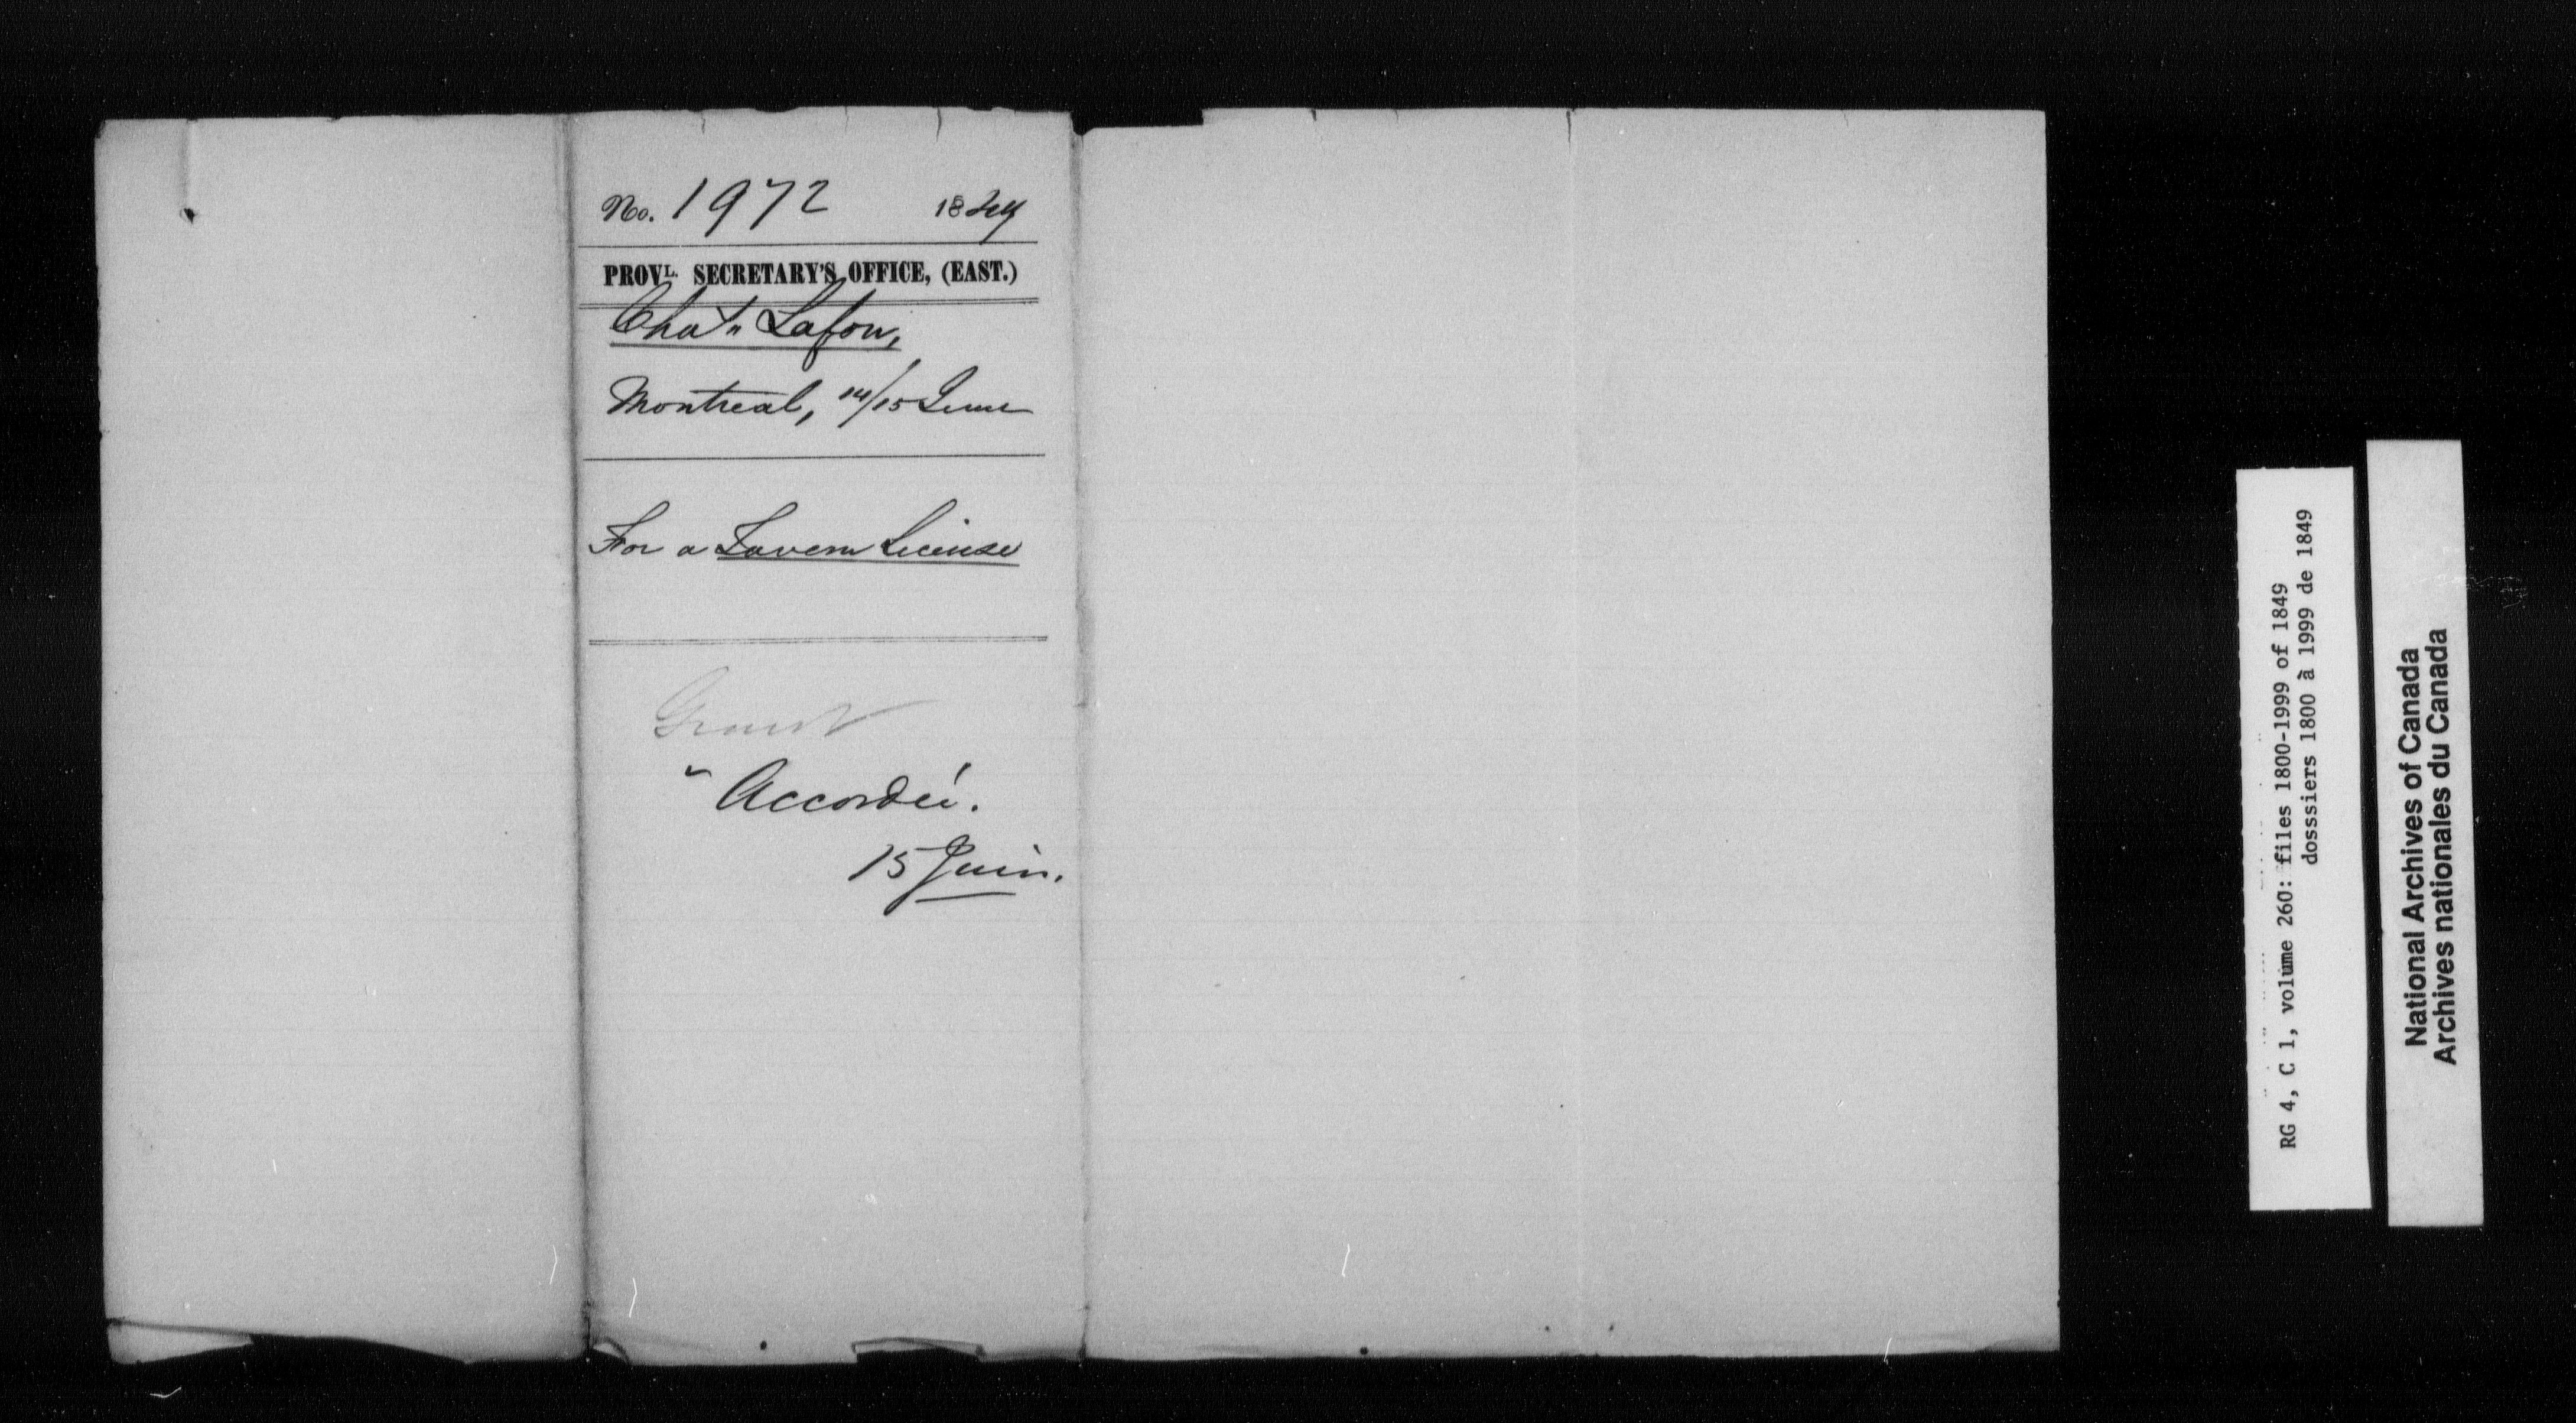 No. 1972 1849
PROVL. SECRETARY'S OFFICE, (EAST.)
Lafon,
Montreal, 14/15 June
For a Tavern License
Grant
Accordée.
15 Juin.
RG 4, C 1, volume 260: files 1800-1999 of 1849
dosssiers 1800 à 1999 de 1849
National Archives of Canada
Archives nationales du Canada